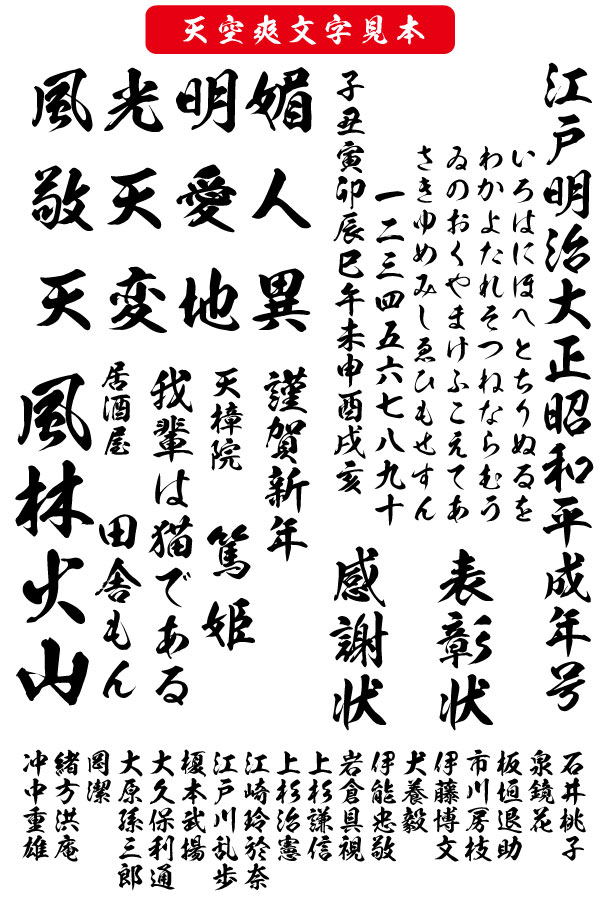 天空爽文字見本
江戸明治大正昭和平成年号
いろはにほへとちりぬるを
わかよたれそつねならむう
ゐのおくやまけふこえてあ
さきゆめみしゑひもせすん
一二三四五六七八九十
子丑寅卯辰巳午未申酉戌亥
表彰状
感謝状
風光明媚
敬天愛人
天変地異
謹賀新年
天樟院 篤姫
我輩は猫である
居酒屋 田舎もん
風林火山
石井桃子
泉鏡花
板垣退助
市川房枝
伊藤博文
犬養毅
伊能忠敬
岩倉具視
上杉謙信
上杉治憲
江崎玲於奈
江戸川乱歩
榎本武揚
大久保利通
大原孫三郎
岡潔
緒方洪庵
冲中重雄